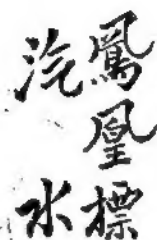 鳳凰標
汽水